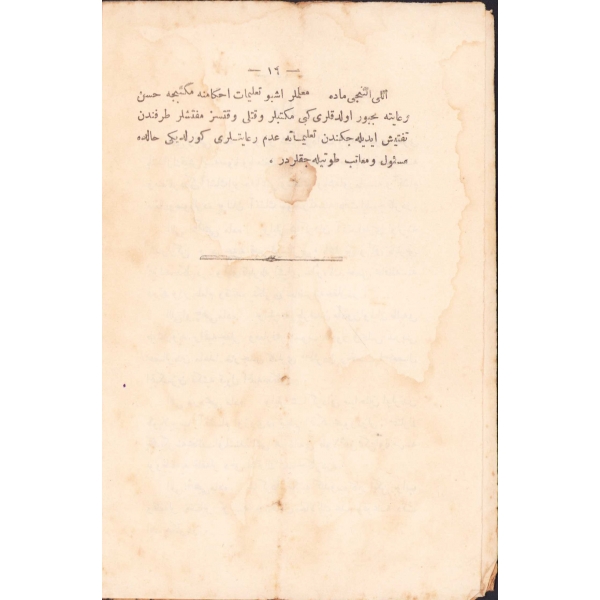 — ١٦ —
اللی التنجی ماده معلملر اشبو تعلیمات احكامنه مكتبجه حسن
رعایته مجبور اولدقلری كبی مكتبلر وقتلی وقتسز مفتشلر طرفندن
تفتیش ایدیله جكندن تعلیماته عدم رعایتلری كورلدیكی حالده
مسئول ومعاتب طوتیله جقلردر .